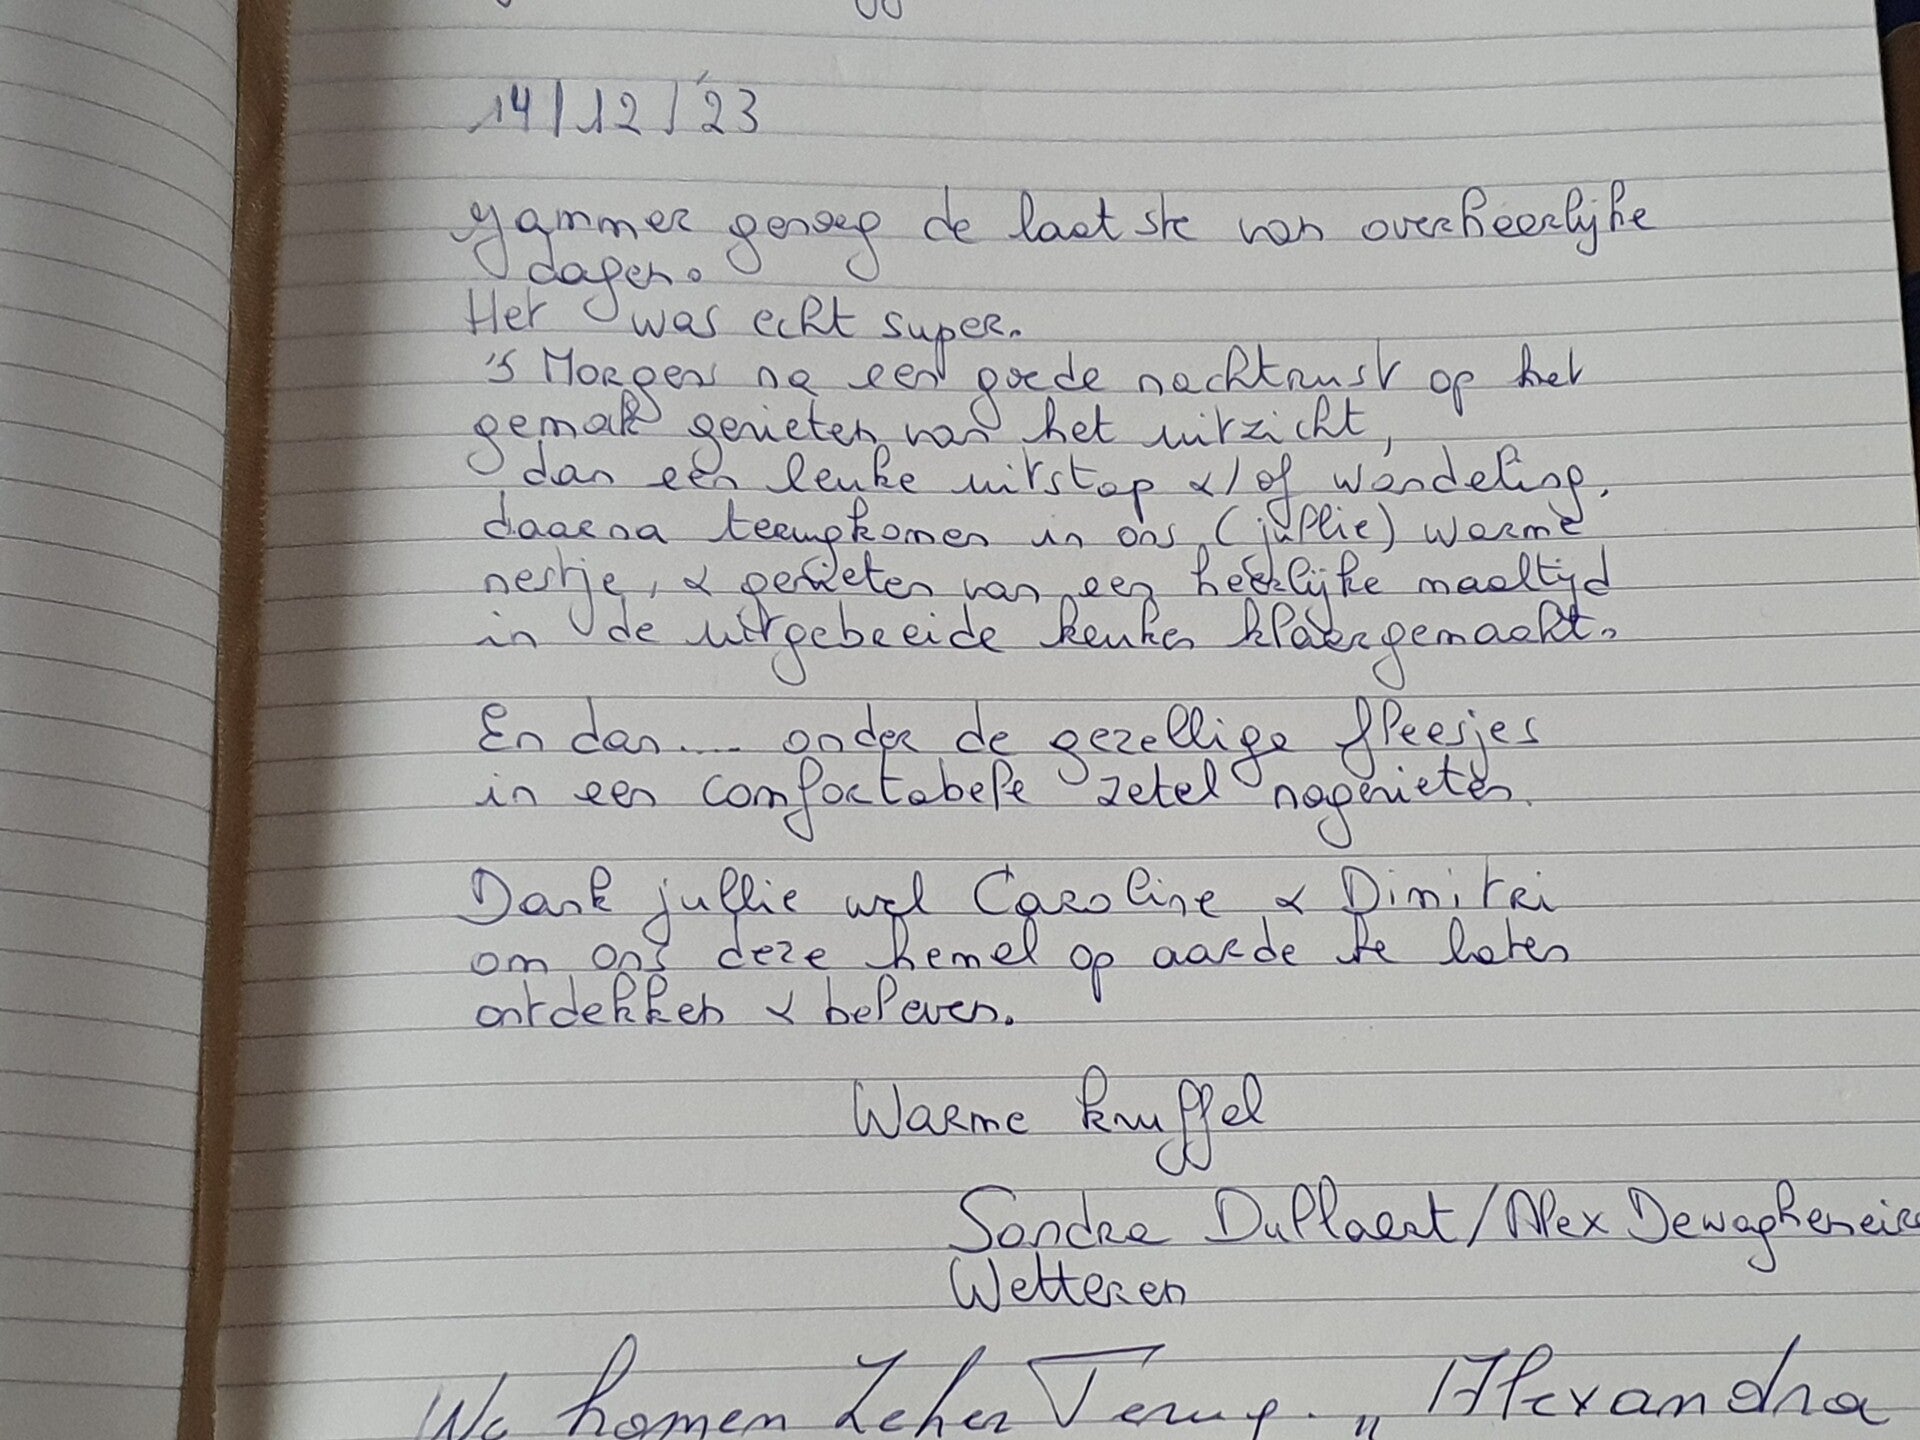 14/12/23
Jammer genoeg de laatste van overheerlijke
dagen.
Het was echt super.
's Morgens na een goede nachtrust op het
gemak genieten van het uitzicht,
dan een leuke uitstap &/of wandeling,
daarna terugkomen in ons (jullie) warme
nestje, & genieten van een heerlijke maaltijd
in de uitgebreide keuken klaargemaakt.
En dan.... onder de gezellige fleesjes
in een comfortabele zetel nagenieten.
Dank jullie wel Caroline & Dimitri
om ons deze hemel op aarde te laten
ontdekken & beleven.
Warme knuffel
Sandra Dullaert/Alex Dewagheneire
Wetteren
We komen Zeker Terug. „ Alexandra